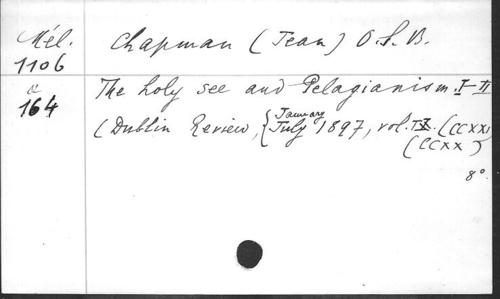 Mél.
1106
a
164
Chapman (Jean) O.S.B.
The holy see and Pelagianism. I-II
(Dublin Review, { January
July 1897, vol. (CCXXI
(CCXX)
8°.